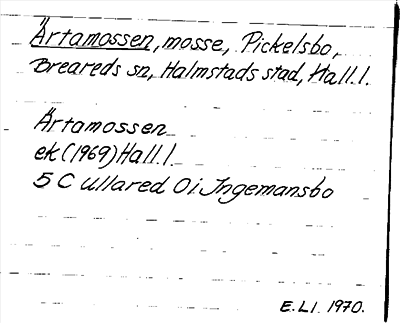 Ärtamossen, mosse, Pickelsbo,
Breareds sn, Halmstads stad, Hall.l.
Ärtamossen
ek (1969) Hall.l.
5 C Ullared 0 i Ingemansbo
E.LI. 1970.